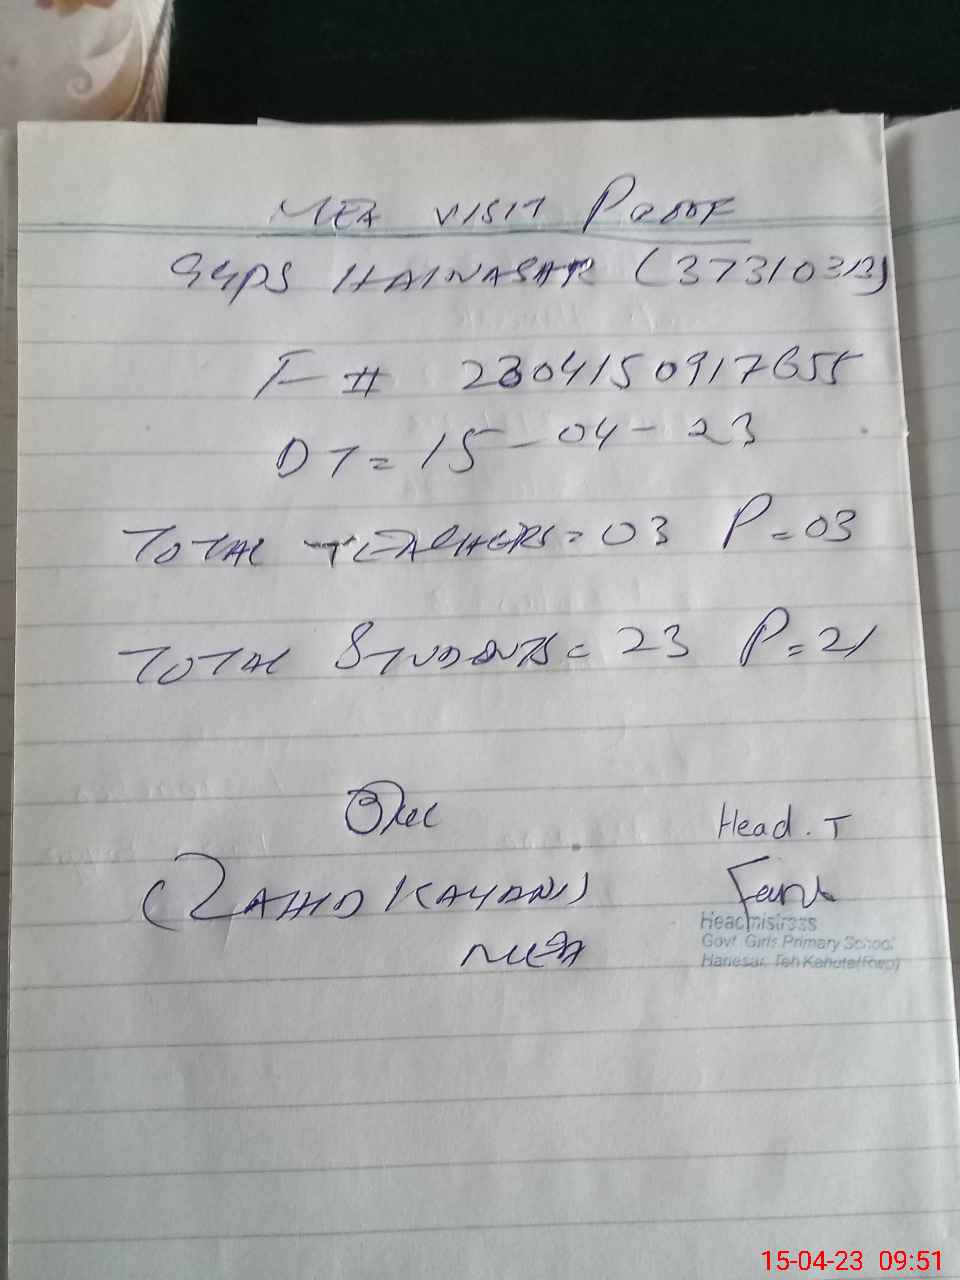 MEA VISIT PROOF
GGPS HAINASAR (37310313)
F # 2304150917655
DT = 15-04-23
TOTAL TEACHERS = 03 P = 03
TOTAL STUDENTS = 23 P = 21
Head . T
(ZAHID KAYANI)
MEA
Headmistress
Govt Girls Primary School
Hanesar, Teh Kahuta(Rwp)
15-04-23 09:51